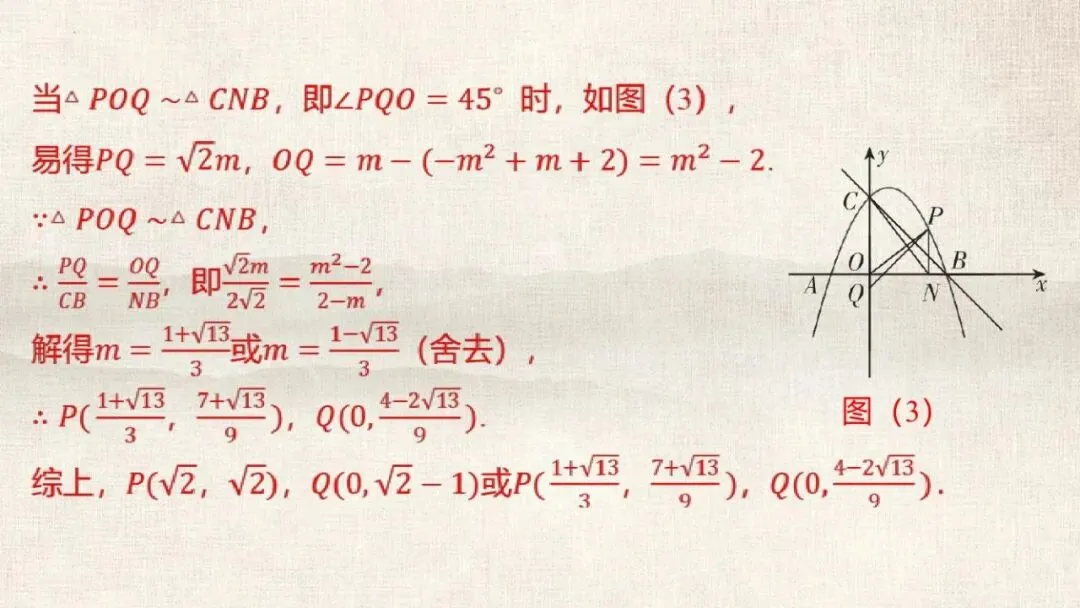 当△ POQ ~△ CNB，即∠PQO = 45° 时，如图（3），
易得PQ = √2m，OQ = m − (−m² + m + 2) = m² − 2.
∵△ POQ ~△ CNB，
∴ PQ/CB = OQ/NB，即√2m/2√2 = m²−2/2−m，
解得m = 1+√13/3或m = 1−√13/3（舍去），
∴ P(1+√13/3，7+√13/9)，Q(0,4−2√13/9).
综上，P(√2，√2)，Q(0,√2 − 1)或P(1+√13/3，7+√13/9)，Q(0,4−2√13/9).
y
C
P
O
B
A
Q
N
x
图（3）